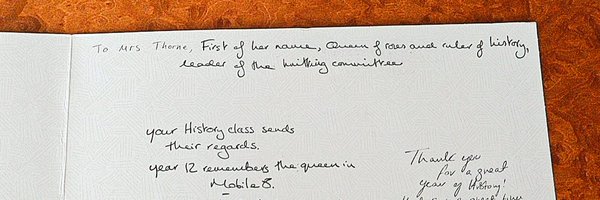 To Mrs Thorne, First of her name, Queen of roses and ruler of history,
leader of the knitting committee
your History class sends
their regards.
year 12 remembers the queen in
Mobile 8.
Thank you
for a great
year of History!